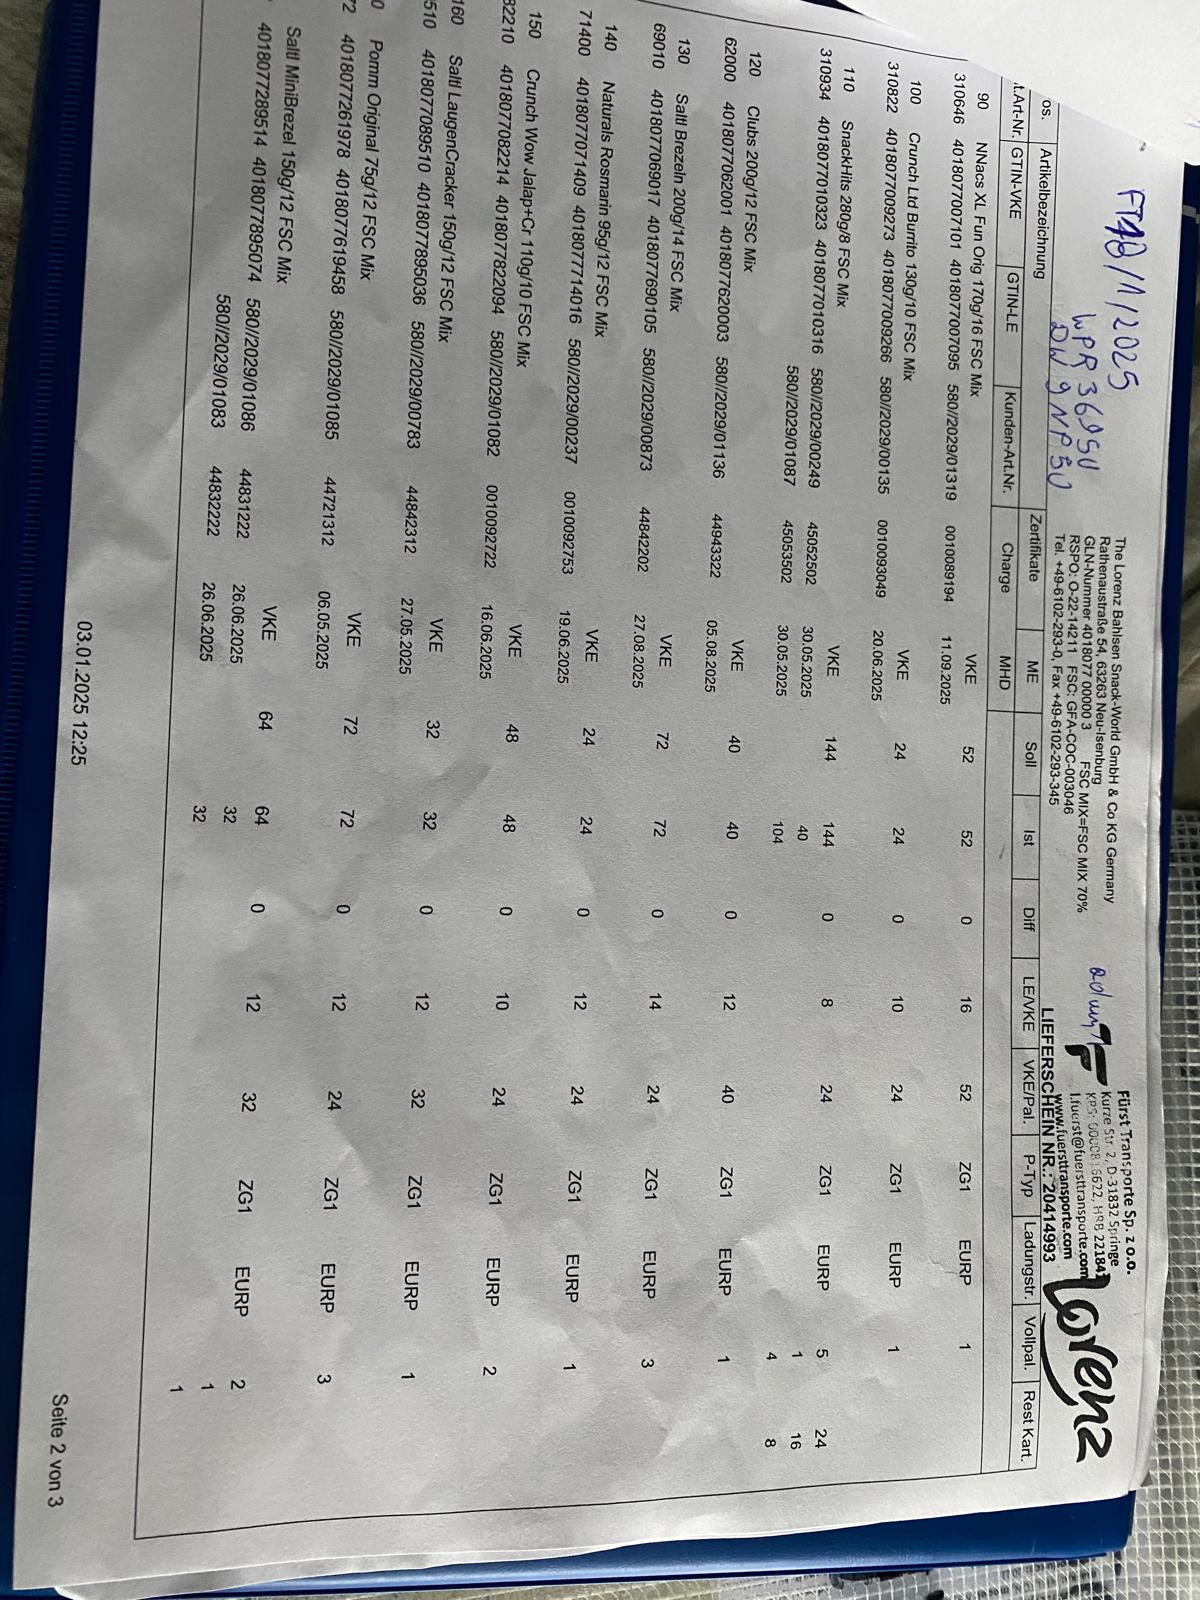 FT48/1/2025
WPR 3605U
DW 9NP50
The Lorenz Bahlsen Snack-World GmbH & Co KG Germany
Rathenaustraße 54, 63263 Neu-Isenburg
GLN-Nummer 4018077 00000 3 FSC MIX=FSC MIX 70%
RSPO: O-22-14211 FSC: GFA-COC-003046
Tel. +49-6102-293-0, Fax +49-6102-293-345
Fürst Transporte Sp. z o.o.
Kurze Str. 2, D-31832 Springe
KRS: 0000816622, HRB 221841
l.fuerst@fuersttransporte.com
www.fuersttransporte.com
Lorenz
LIEFERSCHEIN NR.: 20414993
os. Artikelbezeichnung Zertifikate ME Soll Ist Diff LE/VKE VKE/Pal. P-Typ Ladungstr. Vollpal. Rest Kart.
t.Art-Nr. GTIN-VKE GTIN-LE Kunden-Art.Nr. Charge MHD
90 NNacs XL Fun Orig 170g/16 FSC Mix VKE 52 52 0 16 52 ZG1 EURP 1
310646 4018077007101 4018077007095 580//2029/01319 0010089194 11.09.2025
100 Crunch Ltd Burrito 130g/10 FSC Mix VKE 24 24 0 10 24 ZG1 EURP 1
310822 4018077009273 4018077009266 580//2029/00135 0010093049 20.06.2025
110 SnackHits 280g/8 FSC Mix VKE 144 144 0 8 24 ZG1 EURP 5 24
310934 4018077010323 4018077010316 580//2029/00249 45052502 30.05.2025 40 1 16
580//2029/01087 45053502 30.05.2025 104 4 8
120 Clubs 200g/12 FSC Mix VKE 40 40 0 12 40 ZG1 EURP 1
62000 4018077062001 4018077620003 580//2029/01136 44943322 05.08.2025
130 Saltl Brezeln 200g/14 FSC Mix VKE 72 72 0 14 24 ZG1 EURP 3
69010 4018077069017 4018077690105 580//2029/00873 44842202 27.08.2025
140 Naturals Rosmarin 95g/12 FSC Mix VKE 24 24 0 12 24 ZG1 EURP 1
71400 4018077071409 4018077714016 580//2029/00237 0010092753 19.06.2025
150 Crunch Wow Jalap+Cr 110g/10 FSC Mix VKE 48 48 0 10 24 ZG1 EURP 2
82210 4018077082214 4018077822094 580//2029/01082 0010092722 16.06.2025
160 Saltl LaugenCracker 150g/12 FSC Mix VKE 32 32 0 12 32 ZG1 EURP 1
510 4018077089510 4018077895036 580//2029/00783 44842312 27.05.2025
0 Pomm Original 75g/12 FSC Mix VKE 72 72 0 12 24 ZG1 EURP 3
72 4018077261978 4018077619458 580//2029/01085 44721312 06.05.2025
Saltl MiniBrezel 150g/12 FSC Mix VKE 64 64 0 12 32 ZG1 EURP 2
4018077289514 4018077895074 580//2029/01086 44831222 26.06.2025 32 1
580//2029/01083 44832222 26.06.2025 32 1
03.01.2025 12:25
Seite 2 von 3